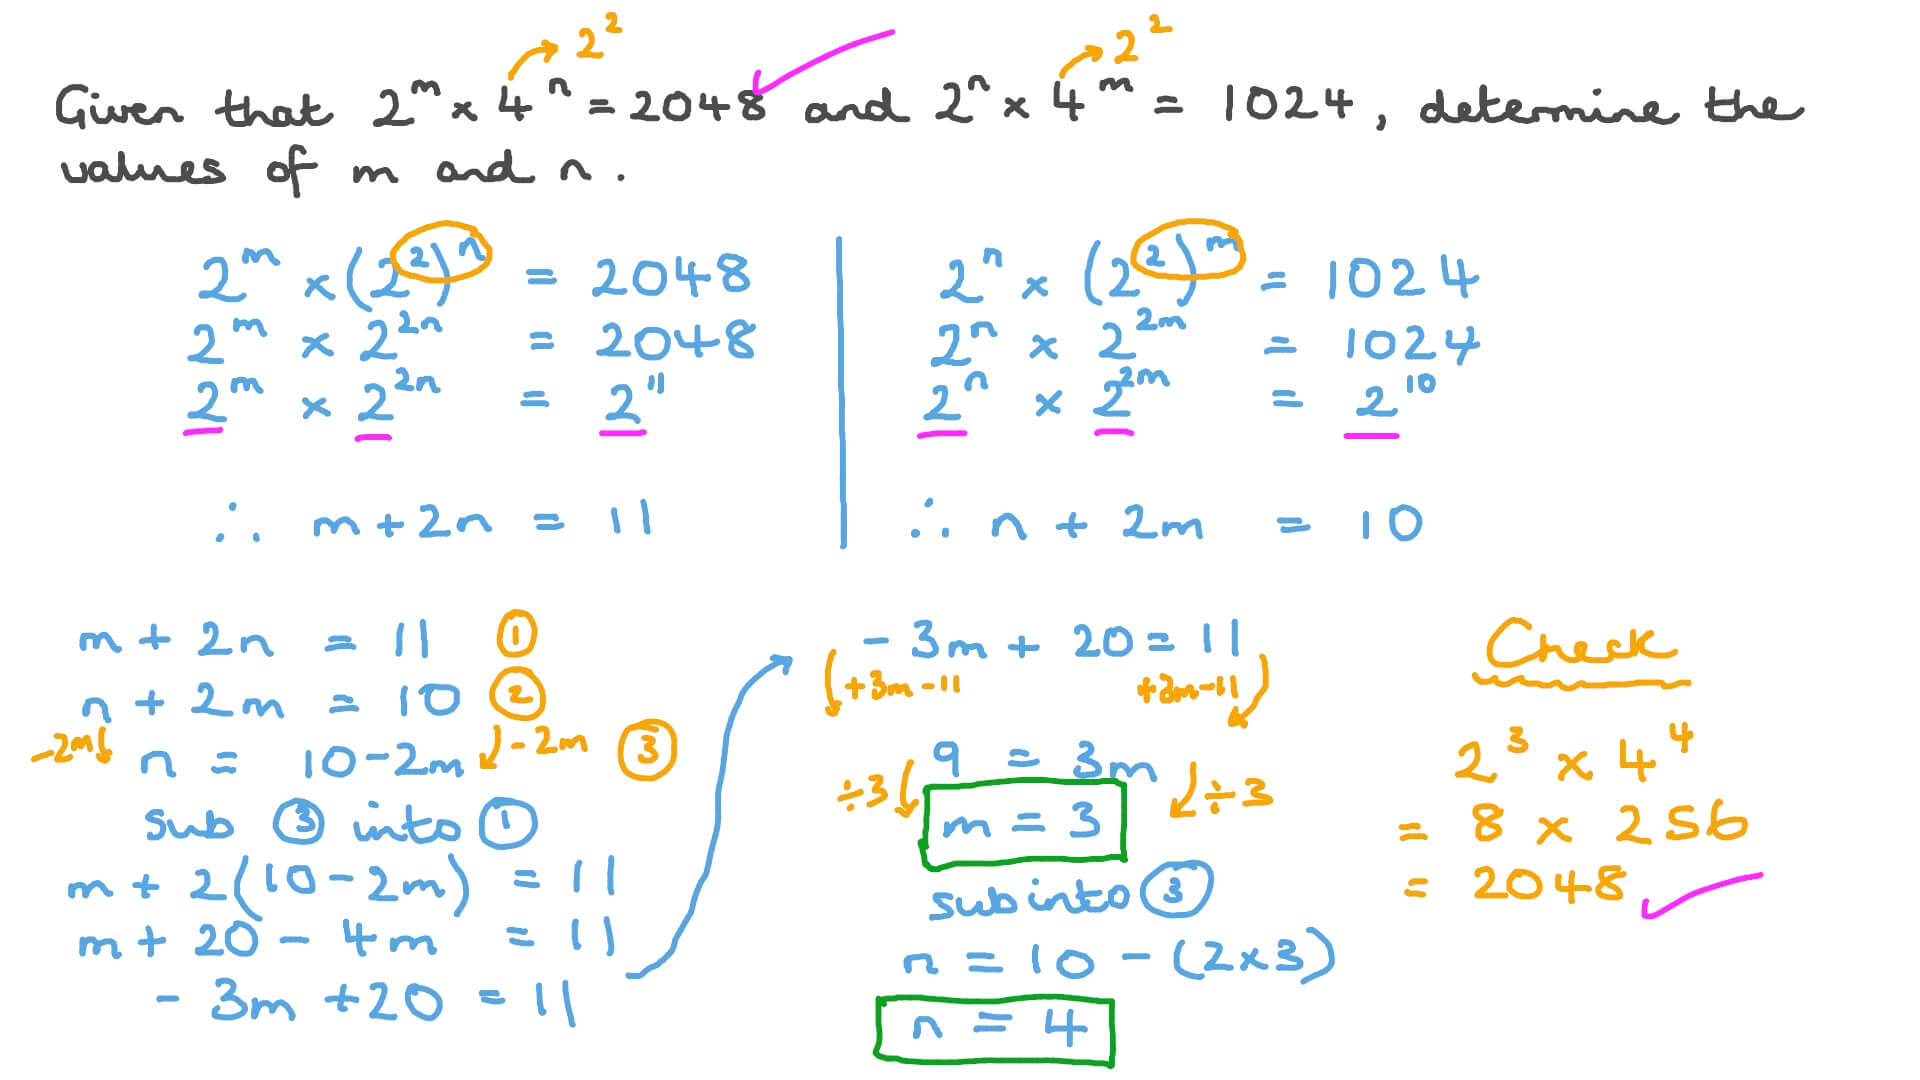 Given that 2^m × 4^n = 2048 and 2^n × 4^m = 1024, determine the
values of m and n.
2^2
2^2
2^m × (2^2)^n = 2048
2^m × 2^2n = 2048
2^m × 2^2n = 2^11
∴ m + 2n = 11
2^n × (2^2)^m = 1024
2^n × 2^2m = 1024
2^n × 2^2m = 2^10
∴ n + 2m = 10
m + 2n = 11 ①
n + 2m = 10 ②
-2m n = 10 - 2m -2m ③
sub ③ into ①
m + 2(10 - 2m) = 11
m + 20 - 4m = 11
- 3m + 20 = 11
- 3m + 20 = 11
+3m - 11 +3m - 11
9 = 3m
÷3 m = 3 ÷3
sub into ③
n = 10 - (2 × 3)
n = 4
Check
2^3 × 4^4
= 8 × 256
= 2048